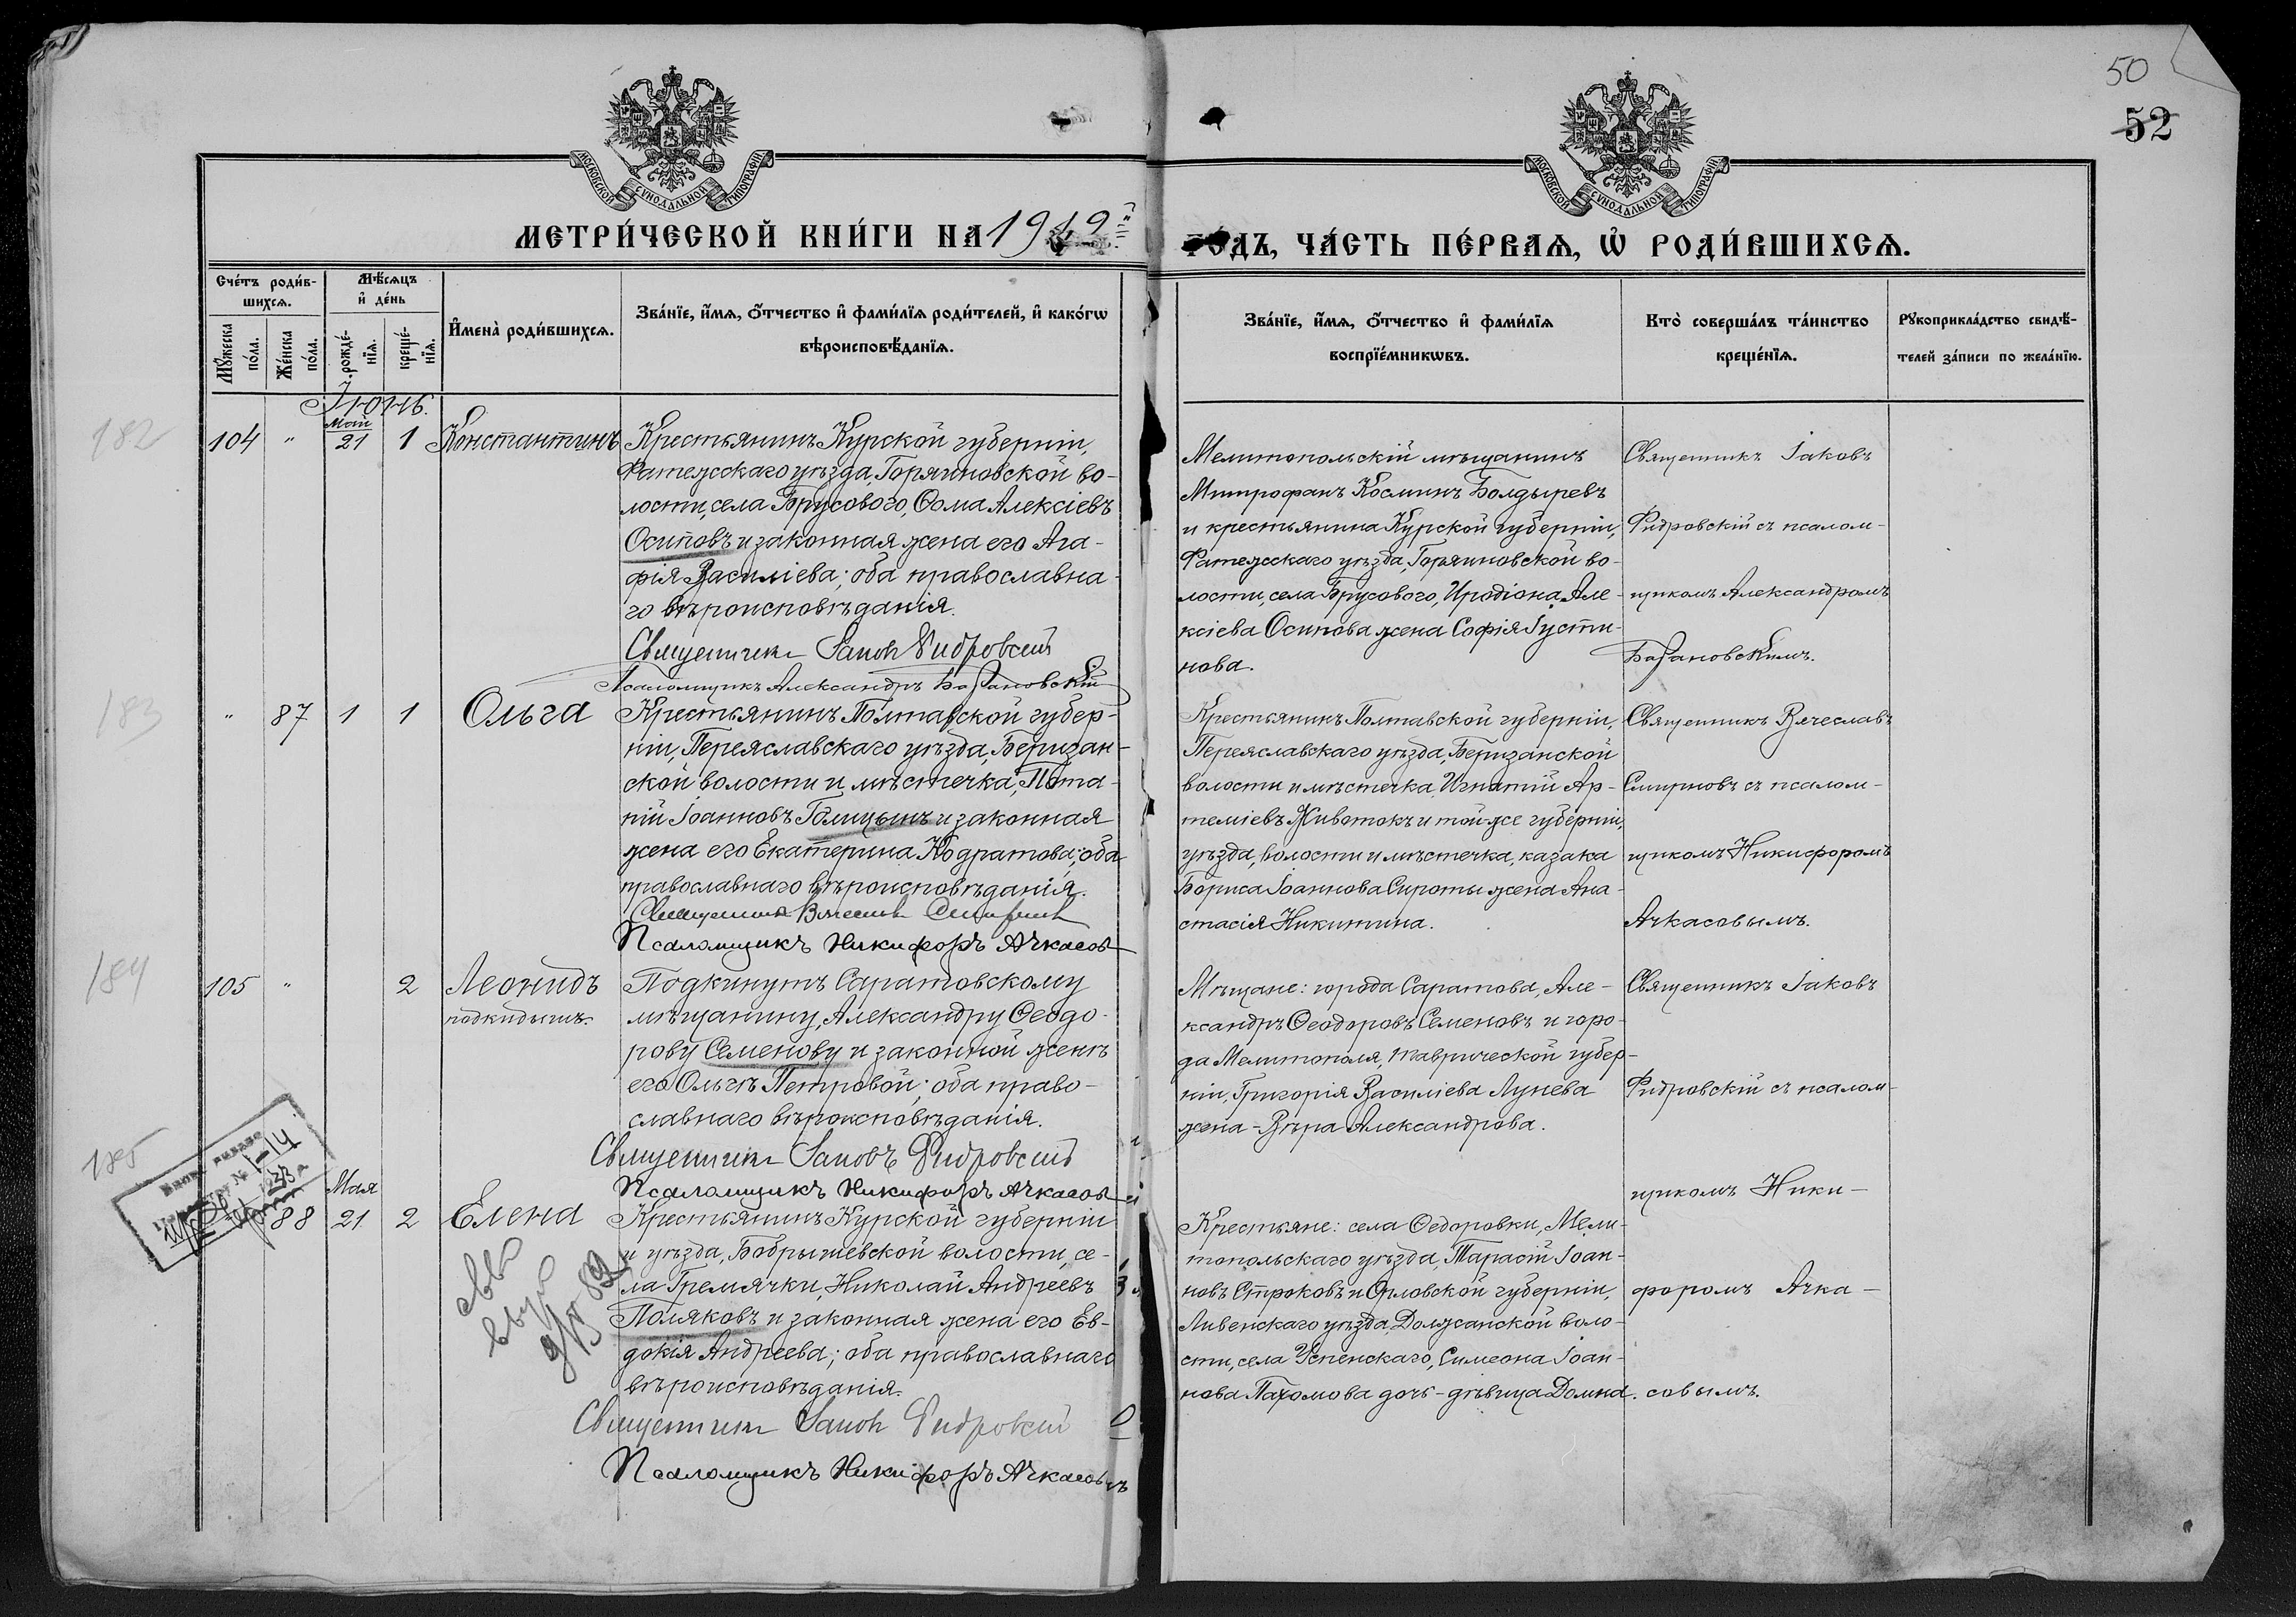 50
52
МОСКОВСКОЙ СѴНОДАЛЬНОЙ ТИПОГРАФІИ
МОСКОВСКОЙ СѴНОДАЛЬНОЙ ТИПОГРАФІИ
МЕТРИ́ЧЕСКОЙ КНИ́ГИ НА 19
ГО́ДЪ, ЧА́СТЬ ПЕ́РВАѦ, Ѡ҆ РОДИ́ВШИХСѦ.
Сче́тъ роди́в-
шихсѧ.
Мѣ́сѧцъ
и҆ де́нь
Мꙋ́жеска
по́ла.
Же́нска
по́ла.
рожде́-
нїѧ.
креще́-
нїѧ.
И҆мена̀ роди́вшихсѧ.
Зва́нїе, и҆́мѧ, ѻ҆́тчество и҆ фами́лїѧ роди́телей, и҆ како́гѡ
вѣроисповѣ́данїѧ.
Зва́нїе, и҆́мѧ, ѻ҆́тчество и҆ фами́лїѧ
воспрїе́мникѡвъ.
Кто̀ соверша́лъ та́инство
креще́нїѧ.
Рꙋкоприкла́дство свидѣ́-
телей за́писи по жела́нїю.
Іюнь.
182
104 " Май 21 1 Константинъ
Крестьянинъ Курской губерніи,
Фатежскаго уѣзда, Горяиновской во-
лости, села Брусового, Ѳома Алексіевъ
Осиповъ и законная жена его Ага-
фія Василіева; оба православна-
го вѣроисповѣданія.
Священникъ Іаковъ Фидровскій
Псаломщикъ Александръ Базановскій
Мелитопольскій мѣщанинъ
Митрофанъ Космин Болдыревъ
и крестьянина Курской губерніи,
Фатежскаго уѣзда, Горяиновской во-
лости, села Брусового, Иродіона Але-
ксіева Осипова жена Софія Іусти-
нова.
Священникъ Іаковъ
Фидровскій съ псалом-
щикомъ Александромъ
Базановскимъ.
183
" 87 1 1 Ольга
Крестьянинъ Полтавской губер-
ніи, Переяславскаго уѣзда, Беризан-
ской волости и мѣстечка, Пота-
пій Іоанновъ Голицынъ и законная
жена его Екатерина Кодратова; оба
православнаго вѣроисповѣданія.
Священникъ Вячеславъ Смирновъ
Псаломщикъ Никифоръ Ачкасовъ
Крестьянинъ Полтавской губерніи,
Переяславскаго уѣзда, Беризанской
волости и мѣстечка, Игнатій Ар-
теміевъ Животокъ и той же губерніи,
уѣзда, волости и мѣстечка, казака
Бориса Іоаннова Сироты жена Ана-
стасія Никитина.
Священникъ Вячеславъ
Смирновъ съ псалом-
щикомъ Никифоромъ
Ачкасовымъ.
184
105 " 2 Леонидъ
подкидышъ.
Подкинутъ Саратовскому
мѣщанину, Александру Ѳеодо-
рову Семенову и законной женѣ
его Ольгѣ Петровой; оба право-
славнаго вѣроисповѣданія.
Священникъ Іаковъ Фидровскій
Псаломщикъ Никифоръ Ачкасовъ
Мѣщане: города Саратова, Але-
ксандръ Ѳеодоровъ Семеновъ и горо-
да Мелитополя, Таврической губер-
ніи, Григорія Василіева Лунева
жена - Вѣра Александрова.
Священникъ Іаковъ
Фидровскій съ псалом-
щикомъ Ники-
форомъ Ачка-
совымъ.
185
88 Мая 21 2 Елена
Крестьянинъ Курской губерніи
и уѣзда, Бобрышевской волости, се-
ла Гремячки, Николай Андреевъ
Поляковъ и законная жена его Ев-
докія Андреева; оба православнаго
вѣроисповѣданія.
Священникъ Іаковъ Фидровскій
Псаломщикъ Никифоръ Ачкасовъ
Крестьяне: села Ѳедоровки, Мели-
топольскаго уѣзда, Тарасій Іоан-
новъ Строковъ и Орловской губерніи,
Ливенскаго уѣзда, Должанской воло-
сти, села Успенскаго, Симеона Іоан-
нова Пахомова дочь - дѣвица Домна.